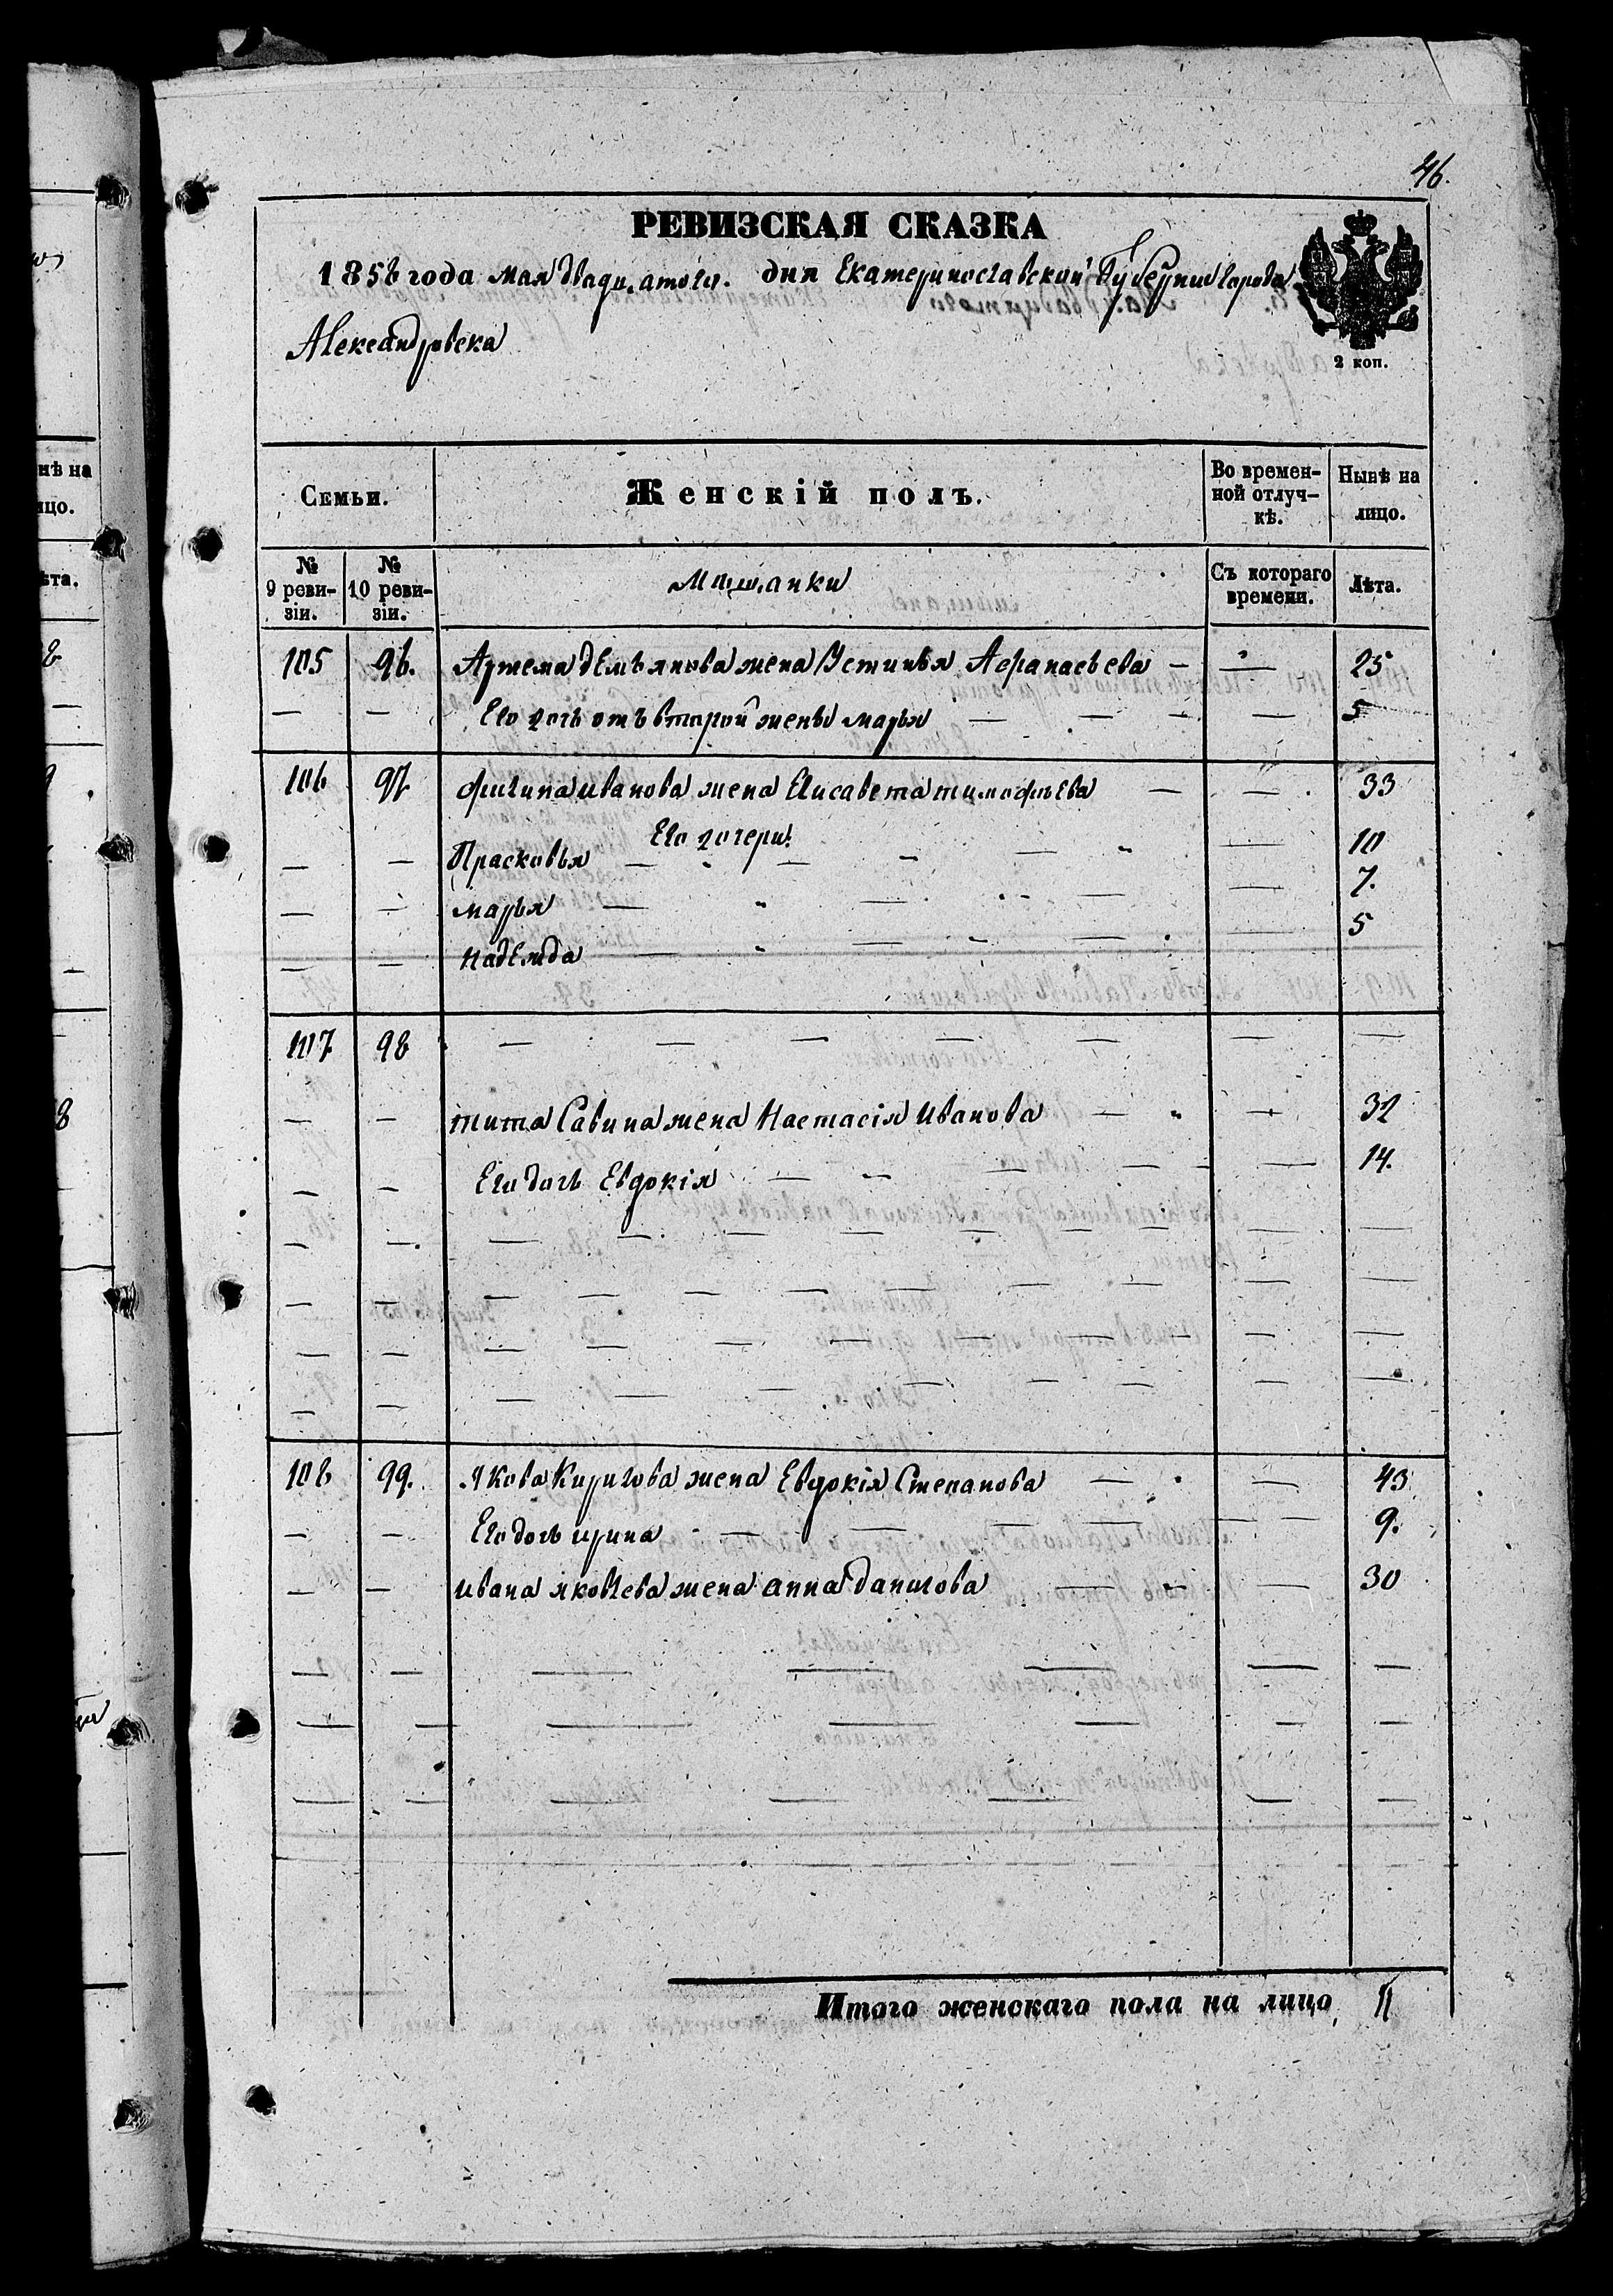 46.
РЕВИЗСКАЯ СКАЗКА
1858 года мая двадцатого дня Екатеринославской Губернии города
Александровска
2 коп.
Семьи. Женскій полъ. Во времен-ной отлуч-кѣ. Нынѣ на лицо.
№ 9 реви-зіи. № 10 реви-зіи. Мѣщанки Съ котораго времени. Лѣта.
105 96. Артема демьянова жена Устинья Афанасьева — — 25
— — Его дочь отъ второй жены марья — — — — 5
106 97 филипа иванова жена Елисавета тимофѣева — — 33
Его дочери:
— — Прасковья — — — — — 10
— — марья — — — — 7.
— — надежда — — — — 5
107 98 — — — — — — — —
— — тита Савина жена Настасія иванова — — 32
— — Его дочь Евдокія — — — — — 14.
— — — — — — — — — — —
— — — — — — — — — — —
— — — — — — — — — — —
— — — — — — — — — — —
108 99. Якова Кирилова жена Евдокія Степанова — — 43
— — Его дочь ирина — — — — — — 9.
— — ивана яковлева жена анна данилова — — — 30
— — — — — — —
— — — — — — —
— — — — — — —
Итого женскаго пола на лицо 11
нѣ на
ицо.
ѣта.